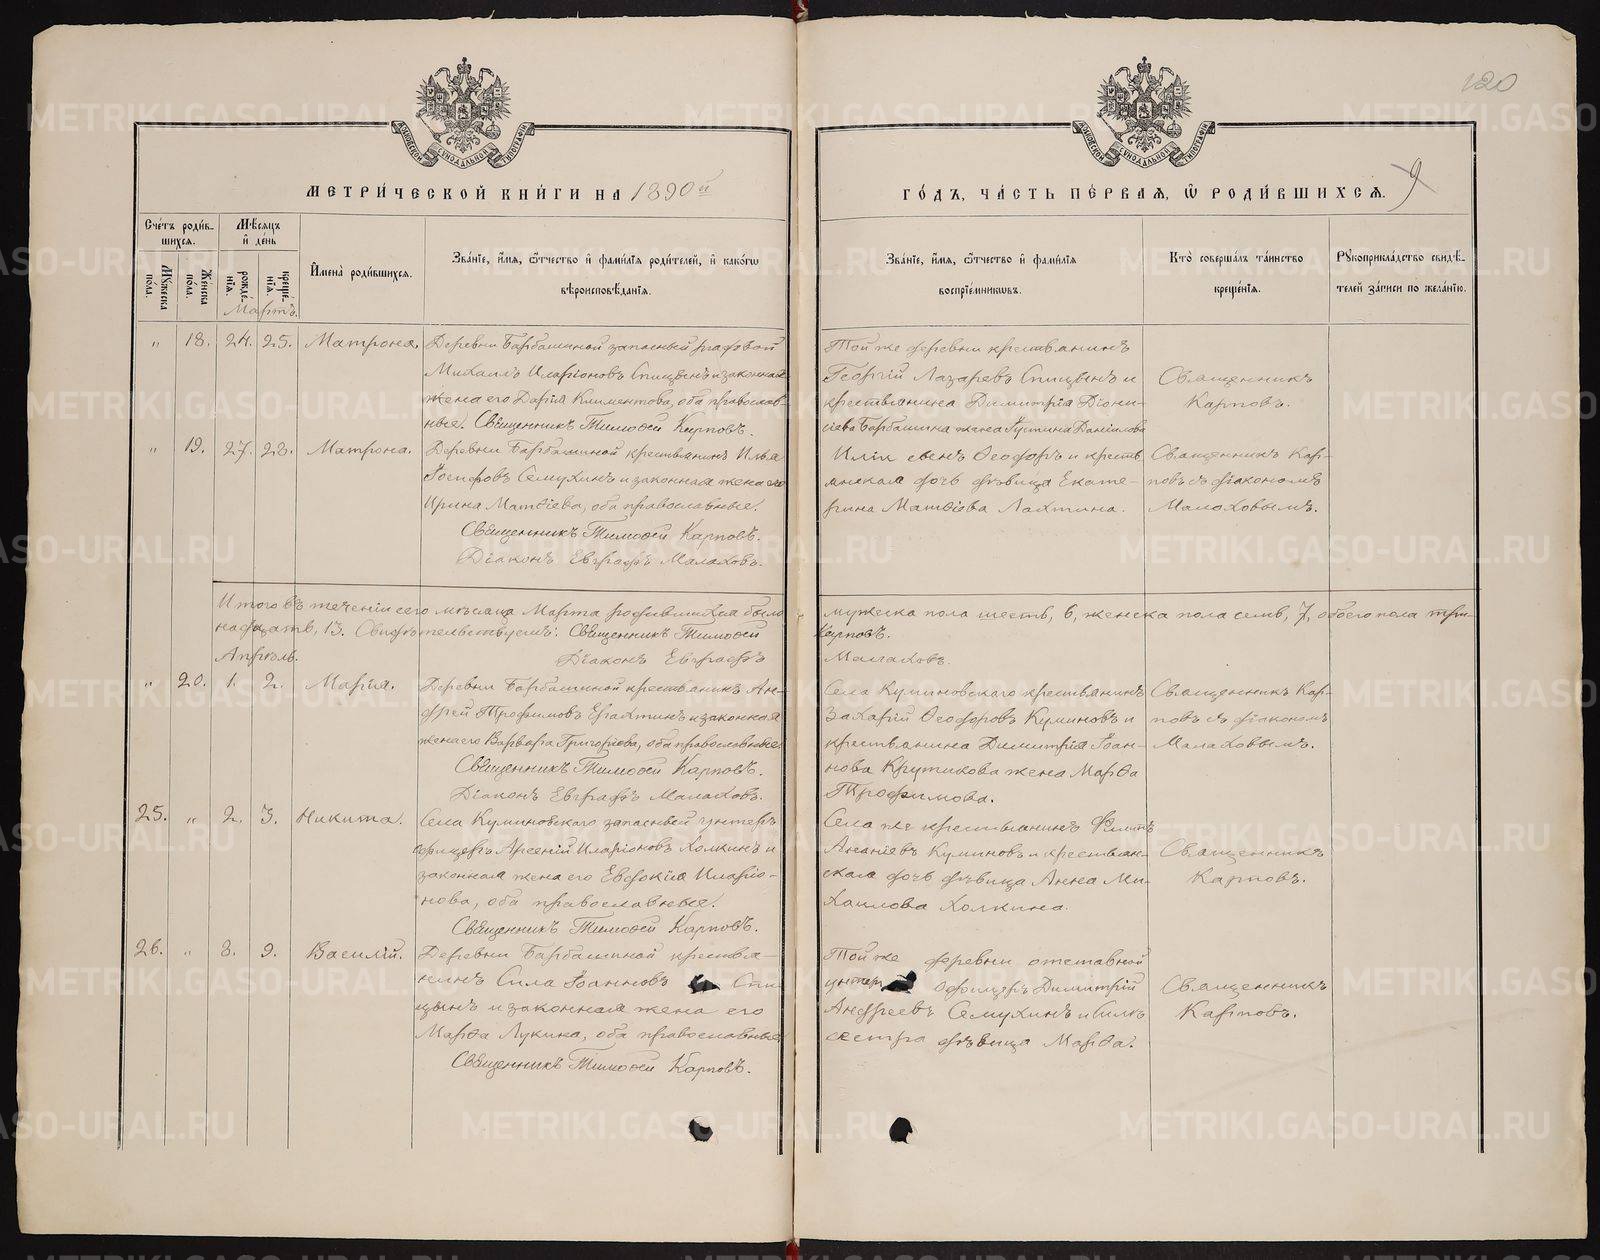 120
МОСКОВСКОЙ СѴНОДАЛЬНОЙ ТИПОГРАФІИ
МОСКОВСКОЙ СѴНОДАЛЬНОЙ ТИПОГРАФІИ
МЕТРИ́ЧЕСКОЙ КНИ́ГИ НА 1890й
ГО́ДЪ, ЧА́СТЬ ПЕ́РВАЯ, Ѡ РОДИ́ВШИХСЯ. 9
Сче́тъ роди́в-
шихся.
Мѣ́сяцъ
и҆ де́нь
Мꙋ́жеска по́ла.
Же́нска по́ла.
рожде́-
нія.
креще́-
нія.
И҆мена̀ роди́вшихся.
Зва́ніе, и҆́мя, ѻ҆́тчество и҆ фами́лія роди́телей, и҆ како́гѡ
вѣроисповѣ́данія.
Зва́ніе, и҆́мя, ѻ҆́тчество и҆ фами́лія
воспріе́мникѡвъ.
Кто̀ соверша́лъ та́инство
креще́нія.
Рꙋкоприкла́дство свидѣ́-
телей за́писи по жела́нію.
Мартъ.
" 18. 24. 25. Матрона.
Деревни Барбашиной запасный рядовой
Михаилъ Иларіоновъ Спицынъ и законная
жена его Дарія Климентова, оба православ-
ные. Священникъ Тимофей Карповъ.
Той же деревни крестьянинъ
Георгій Лазаревъ Спицынъ и
крестьянина Димитрія Діони-
сіева Барбашина жена Іустина Даніилова
Священникъ
Карповъ.
" 19. 27. 28. Матрона.
Деревни Барбашиной крестьянинъ Илья
Іосифовъ Семухинъ и законная жена его
Ирина Матѳіева, оба православные.
Священникъ Тимофей Карповъ.
Діаконъ Евграфъ Малаховъ.
Иліи сынъ Ѳеодоръ и кресть
янская дочь дѣвица Екате-
рина Матѳіева Лахтина.
Священникъ Кар-
повъ съ діакономъ
Малаховымъ.
Итого въ теченіи сего мѣсяца Марта родившихся было
мужеска пола шесть, 6, женска пола семь, 7, обоего пола три-
надцать, 13. Свидѣтельствуемъ: Священникъ Тимофей
Карповъ.
Діаконъ Евграфъ
Малаховъ.
Апрѣль.
" 20. 1. 2. Марія.
Деревни Барбашиной крестьянинъ Ан-
дрей Трофимовъ Елахтинъ и законная
жена его Варвара Григоріева, оба православные.
Священникъ Тимофей Карповъ.
Діаконъ Евграфъ Малаховъ.
Села Куминовскаго крестьянинъ
Захарій Ѳеодоровъ Куминовъ и
крестьянина Димитрія Іоан-
нова Крутикова жена Марѳа
Трофимова.
Священникъ Кар-
повъ съ діакономъ
Малаховымъ.
25. " 2. 3. Никита.
Села Куминовскаго запасный унтеръ
офицеръ Арсеній Иларіоновъ Холкинъ и
законная жена его Евдокія Иларіо-
нова, оба православные.
Священникъ Тимофей Карповъ.
Села же крестьянинъ
Ананіевъ Куминовъ и крестьян-
ская дочь дѣвица Анна Ми-
хаилова Холкина.
Священникъ
Карповъ.
26. " 8. 9. Василій.
Деревни Барбашиной крестья-
нинъ Сила Іоанновъ Спи-
цынъ и законная жена его
Марѳа Лукина, оба православные
Священникъ Тимофей Карповъ.
Той же деревни отставной
унтеръ офицеръ Димитрій
Андреевъ Семухинъ и Силы
сестра дѣвица Марѳа.
Священникъ
Карповъ.
METRIKI.GASO-URAL.RU